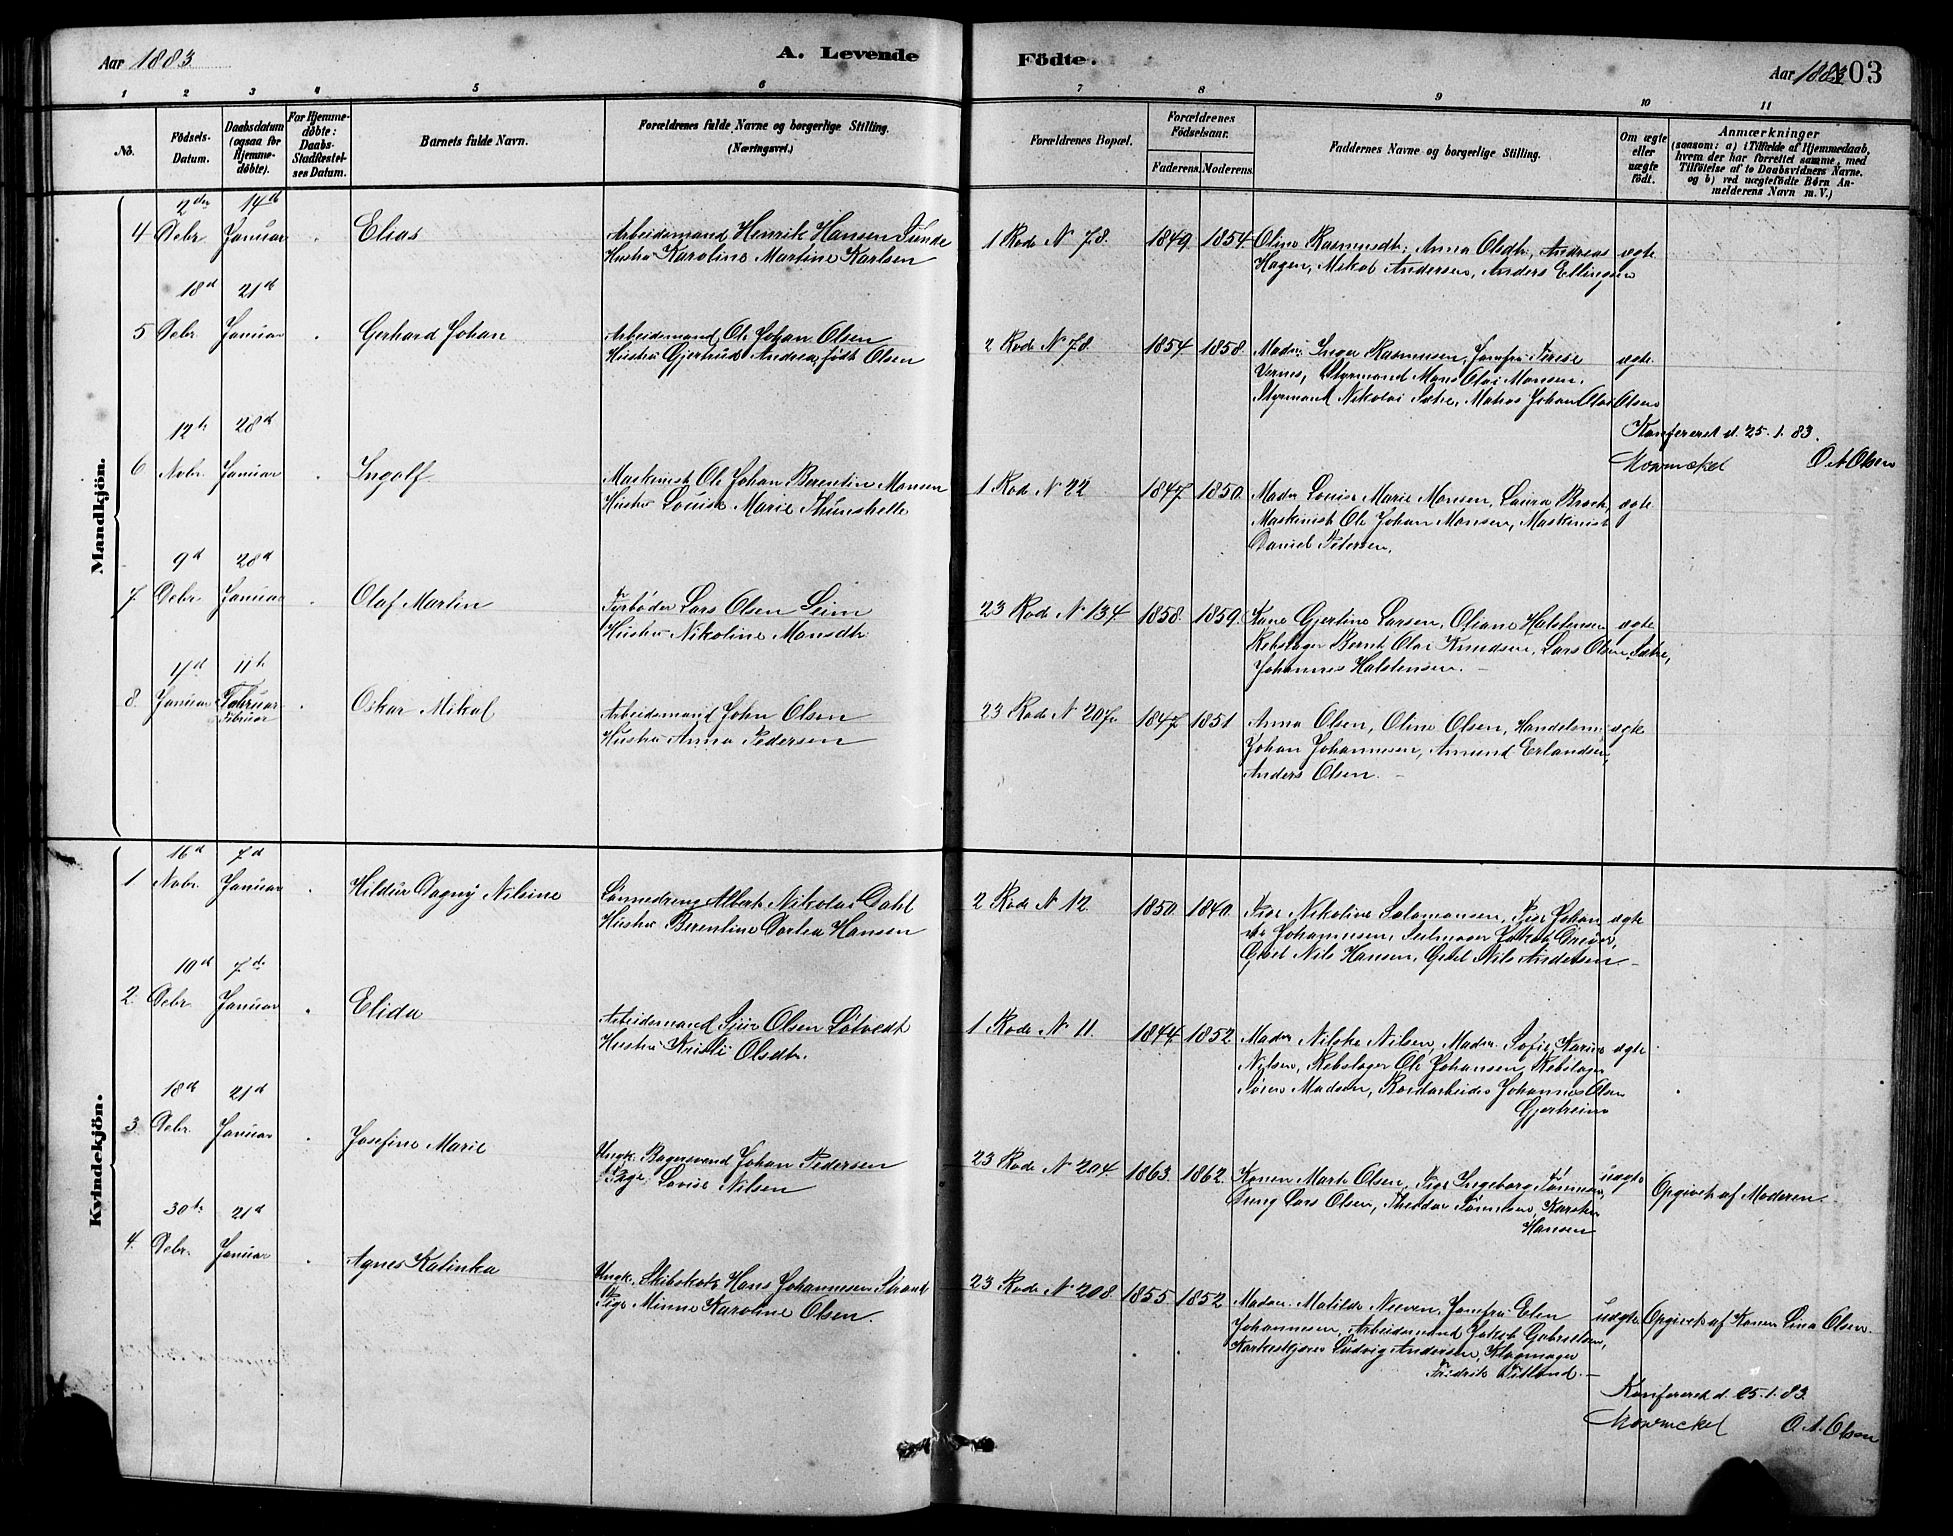 Aar 1883
A. Levende
Födte.
Aar 1883
103
1 2 3 4 5 6 7 8 9 10 11
No.
Födsels-Datum.
Daabsdatum (ogsaa for Hjemmedøbte).
For Hjemmedøbte: Daabs-Stadfestelses Datum.
Barnets fulde Navn.
Forældrenes fulde Navne og borgerlige Stilling. (Næringsvei.)
Forældrenes Bopæl.
Forældrenes Födselsaar.
Faderens. Moderens.
Faddernes Navne og borgerlige Stilling.
Om ægte eller uægte født.
Anmærkninger
(saasom: a) i Tilfælde af Hjemmedaab,
hvem der har forrettet samme, med
Tilföielse af to Daabsvidners Navne.
og b) ved uægtefödte Børn An-
melderens Navn m.V.)
Mandkjön.
4 2den Debr. 14d Januar Elias
Arbeidsmand Henrik Hansen Sunde
Hustru Karoline Martine Karlsen
1 Rode N 78. 1849. 1854.
Oline Rasmusdtr, Anna Olsdtr, Andreas
Hagen, Mikal Andersen, Anders Ellingsen
ægte
5 18d Debr. 21d Januar Gerhard Johan
Arbeidsmand Ole Johan Olsen
Hustru Gjertrud Andrea, født Olsen
2 Rode N 78 1854. 1858.
Madm. Inga Rasmussen, Jomfru
Styrmand Mons Olai Monsen.
Styrmand Nikolai Sætre, Matros Johan Olai Olsen
ægte.
Konfereret d. 25.1.83.
Mowinckel O A Olsen
6 12te Nobr. 28d Januar Ingolf
Maskinist Ole Johan Berentin Monsen
Hustru Louise Marie Thunshelle
1 Rode N 22 1847. 1850.
Madm Louise Marie Monsen, Laura Broch,
Maskinist Ole Johan Monsen, Maskinist
Daniel Pedersen.
ægte
7. 9d Debr. 28d Januar Olaf Martin
Fyrbøder Lars Olsen Seim
Hustru Nikoline Monsdtr
23 Rode N 134 1858. 1859.
Kone Gjertine Larsen, Oliane Halstensen
Rebslager Bernt Olai Knudsen, Lars Olsen Sætre,
Johannes Halstensen. –
ægte
8. Januar 11te Februar Februar Oskar Mikal
Arbeidsmand John Olsen
Hustru Anna Pedersen
23 Rode N 207. 1847. 1851
Anna Olsen, Oline Olsen, Handelsm:
Johan Johannesen, Amund Erlandsen,
Anders Olsen. –
ægte
Kvindekjön.
1 16d Nobr. 7d Januar Hildur Dagny Nilsine
Albert Nikolai Dahl
Hustru Berentine Dortea Hansen
2 Rode N 12. 1850. 1840.
Pige Nikoline Salomonsen, Pige Johan
ne Johannesen, Seilmager Jakob Dreier,
Gesel Nils Hansen, Gesel Nils Andersen –
ægte
2. 10d Debr. 7de Januar Elida
Arbeidsmand Sjur Olsen Løtvedt
Hustru Kristi Olsdtr.
1 Rode N 11. 1844. 1852
Madm Nilske Nilsen, Madm. Sofie Karine
Nilsen, Rebslager Ole Johansen, Rebslager
Søren Madsen, Johannes Olsen
Gjertveim
ægte
3 18d Debr. 21d Januar Josefine Marie
Ungk. Bagersvend Johan Pedersen
Pige Lovise Nilsen
23 Rode N 204. 1863. 1862.
Konen Marte Olsen, Pige Ingeborg
Dreng Lars Olsen, Theodor Karsten
Hansen
uægte
Opgivet af Moderen.
4. 30te Debr. 21d Januar Agnes Katinka
Ungk. Skibskok Hans Johannesen Strand
Pige Minne Karoline Olsen.
23 Rode N 208. 1855. 1852
Madm. Matilde Jomfru Elen
Johannesen, Arbeidsmand Jakob Gabrielsen,
Ludvig Andersen,
Fredrik –
uægte
Opgivet af Konen Lina Olsen.
Konfereret d. 25.1.83.
Mowinckel O. A. Olsen